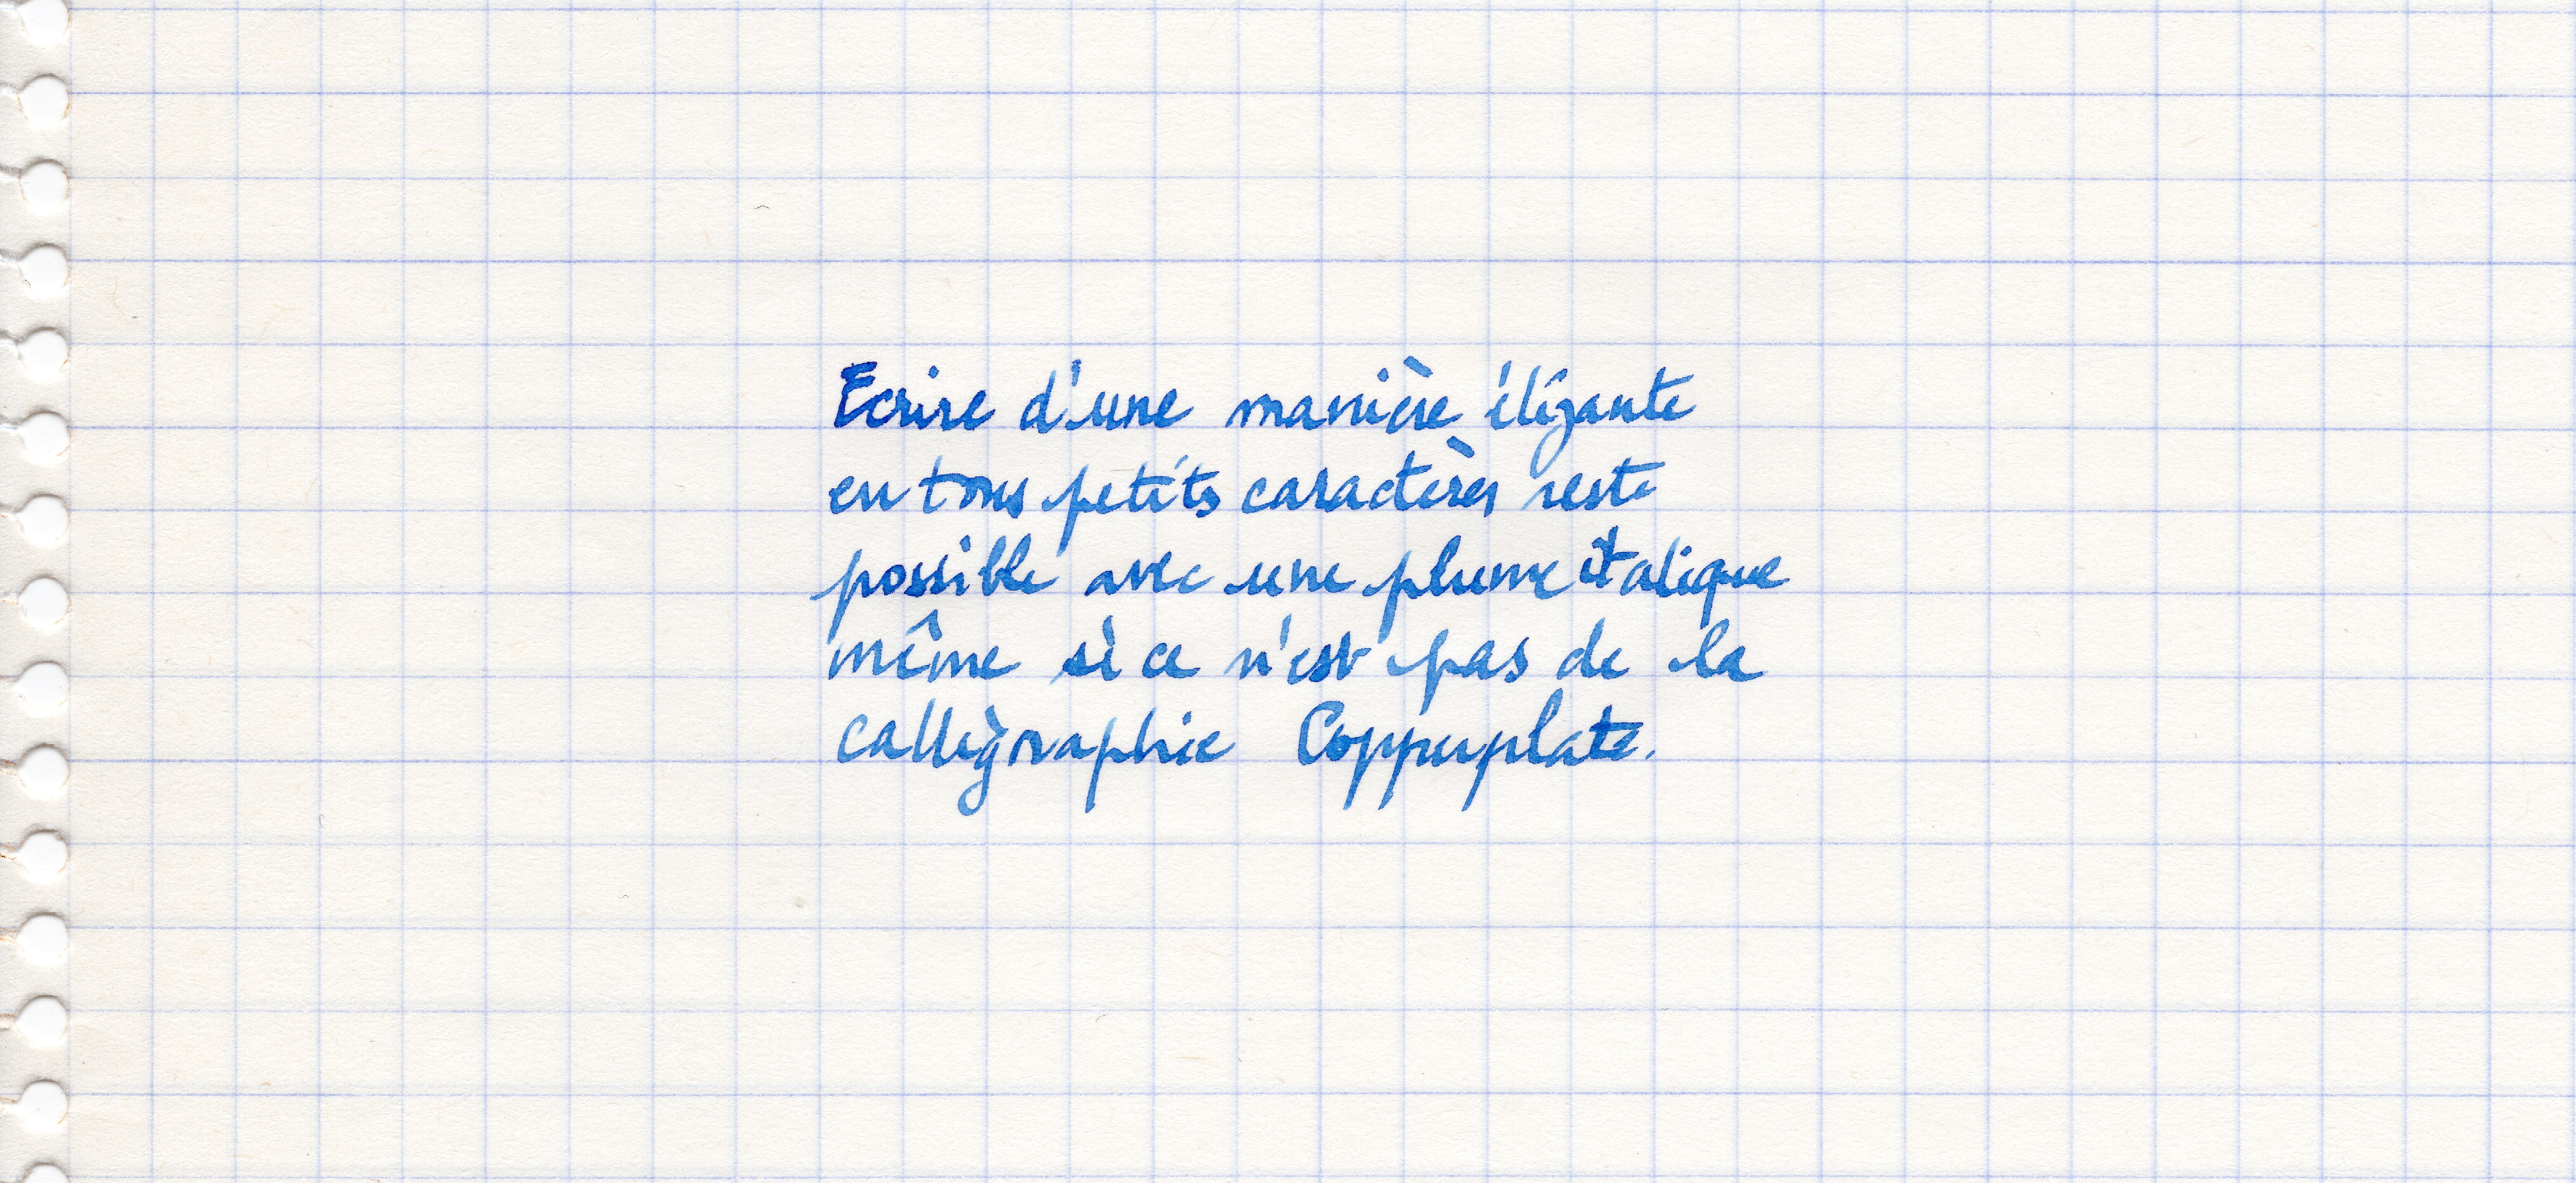 Ecrire d'une manière élégante
en tous petits caractères reste
possible avec une plume italique
même si ce n'est pas de la
calligraphie Copperplate.